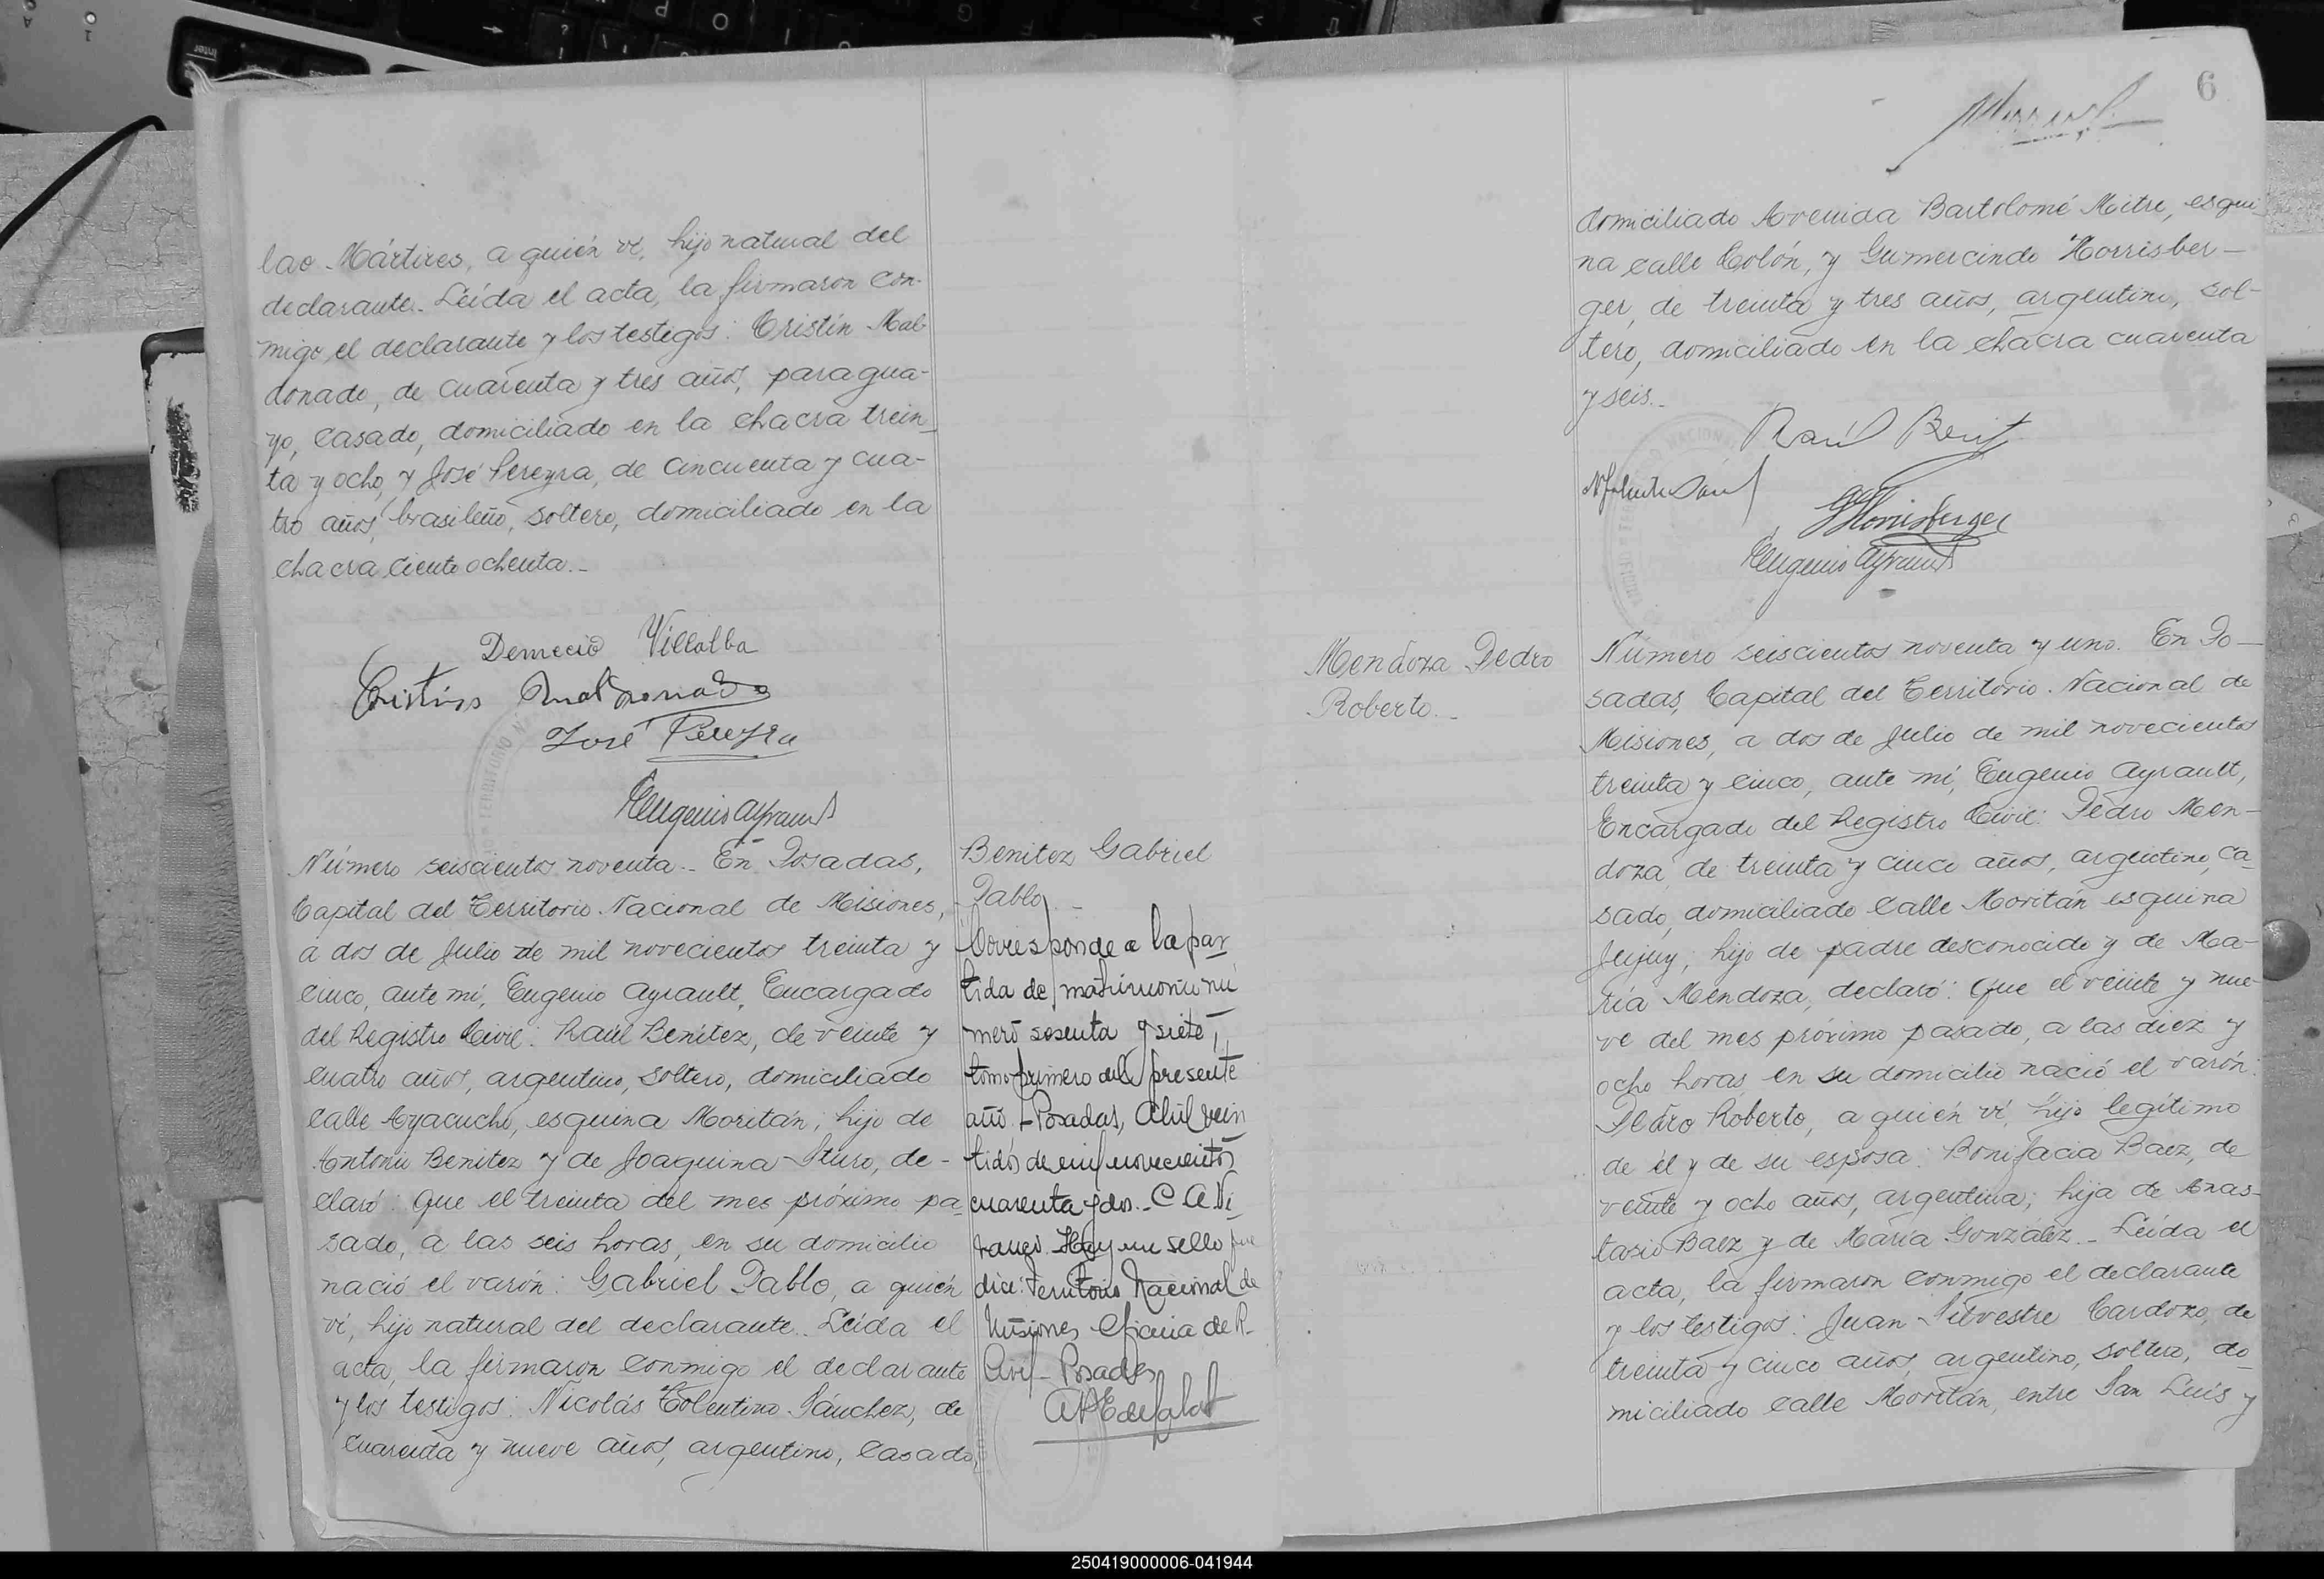 lao Mártires, a quién ví, hijo natural del
declarante. Leída el acta, la firmaron con-
migo el declarante y los testigos: Cristín Mal-
donado, de cuarenta y tres años, paragua-
yo, casado, domiciliado en la chacra trein-
ta y ocho, y José Pereyra, de cincuenta y cua-
tro años, brasileño, soltero, domiciliado en la
chacra ciento ochenta.-
Demecio Villalba
Cristino Maldonado
José Pereyra
Eugenio Ayrault
Número seiscientos noventa.- En Posadas,
Capital del Territorio Nacional de Misiones,
a dos de Julio de mil novecientos treinta y
cinco, ante mí, Eugenio Ayrault, Encargado
del Registro Civil: Raúl Benítez, de veinte y
cuatro años, argentino, soltero, domiciliado
calle Ayacucho, esquina Moritán; hijo de
Antonio Benitez y de Joaquina Sturo, de-
claró: Que el treinta del mes próximo pa-
sado, a las seis horas, en su domicilio
nació el varón: Gabriel Pablo, a quién
ví, hijo natural del declarante. Leída el
acta, la firmaron conmigo el declarante
y los testigos: Nicolás Tolentino Sánchez, de
cuarenta y nueve años, argentino, casado,
Benitez Gabriel
Pablo.-
Corresponde a la par
tida de matrimonio nú
mero sesenta y siete,
tomo primero del presente
año.- Posadas, Abril vein
tidós de mil novecientos
cuarenta y dos.- C A Ni
Hay un sello que
dice: Territorio Nacional de
Misiones Oficina de R.
Civil - Posadas
6
domiciliado Avenida Bartolomé Mitre, esqui-
na calle Colón, y Gumercindo Horrisber-
ger, de treinta y tres años, argentino, sol-
tero, domiciliado en la chacra cuarenta
y seis.-
Raúl Benitez
GHorrisberger
Eugenio Ayrault
Mendoza Pedro
Roberto.-
Número seiscientos noventa y uno. En Po-
sadas, Capital del Territorio Nacional de
Misiones, a dos de Julio de mil novecientos
treinta y cinco, ante mí, Eugenio Ayrault,
Encargado del Registro Civil: Pedro Men-
doza, de treinta y cinco años, argentino, ca-
sado, domiciliado calle Moritán esquina
Jujuy; hijo de padre desconocido y de Ma-
ría Mendoza, declaró: Que el veinte y nue-
ve del mes próximo pasado, a las diez y
ocho horas, en su domicilio nació el varón:
Pedro Roberto, a quién ví, hijo legítimo
de él y de su esposa: Bonifacia Baez, de
veinte y ocho años, argentina; hija de Anas-
tasio Baez y de María González.- Leída el
acta, la firmaron conmigo el declarante
y los testigos: Juan Silvestre Cardozo, de
treinta y cinco años, argentino, soltero, do-
miciliado calle Moritán, entre San Luis y
250419000006-041944